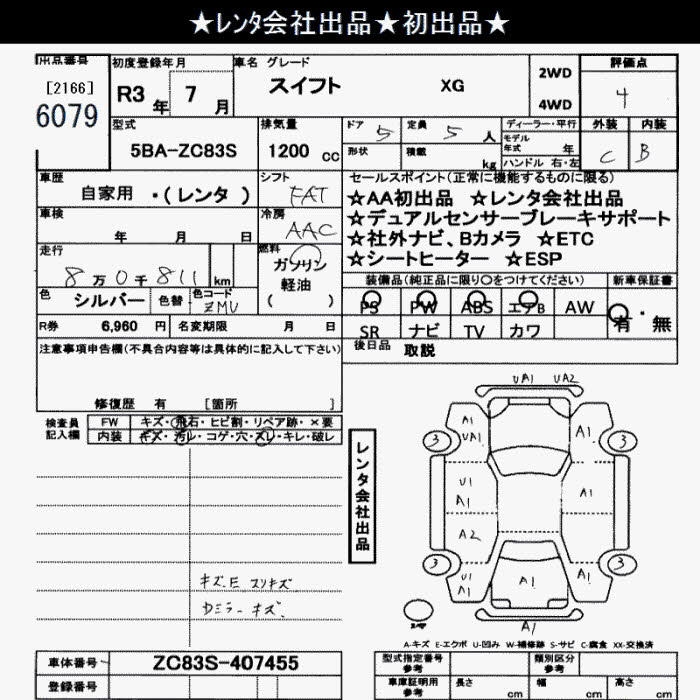 ★レンタ会社出品★初出品★
出品番号
[2166]
6079
初度登録年月
R3年 7月
車名 グレード
スイフト XG
2WD
4WD
評価点
4
外装 内装
C B
型式
5BA-ZC83S
排気量
1200 cc
ドア 5
定員 5 人
形状
積載 kg
ディーラー・平行
モデル年式 年
ハンドル 右・左
車歴
自家用 ・(レンタ )
シフト
FAT
車検
年 月 日
冷房
AAC
走行
8万0千811 km
燃料
ガソリン
軽油
( )
色 シルバー
色替
色コード
ZMU
R券 6,960 円
名変期限 月 日
セールスポイント(正常に機能するものに限る)
★AA初出品 ☆レンタ会社出品
★デュアルセンサーブレーキサポート
★社外ナビ、Bカメラ ☆ETC
★シートヒーター ☆ESP
装備品(純正品に限り○をつけてください)
新車保証書
PS PW ABS エアB AW
有・無
SR ナビ TV カワ
後日品 取説
注意事項申告欄(不具合内容等は具体的に記入して下さい)
修復歴 有 [箇所 ]
検査員記入欄
FW キズ・飛石・ヒビ割・リペア跡・×要
内装 キズ・汚レ・コゲ・穴・スレ・キレ・破レ
レンタ会社出品
UA1 UA2
A1
UA1
A1
3
3
U1
A1
A1
A2
3
3
U1
A1
A1
A1
A1
A-キズ E-エクボ U-凹み W-補修跡 S-サビ C-腐食 XX-交換済
車体番号 ZC83S-407455
登録番号
型式指定番号参考
類別区分参考
車庫証明用参考
長さ cm
幅 cm
高さ cm